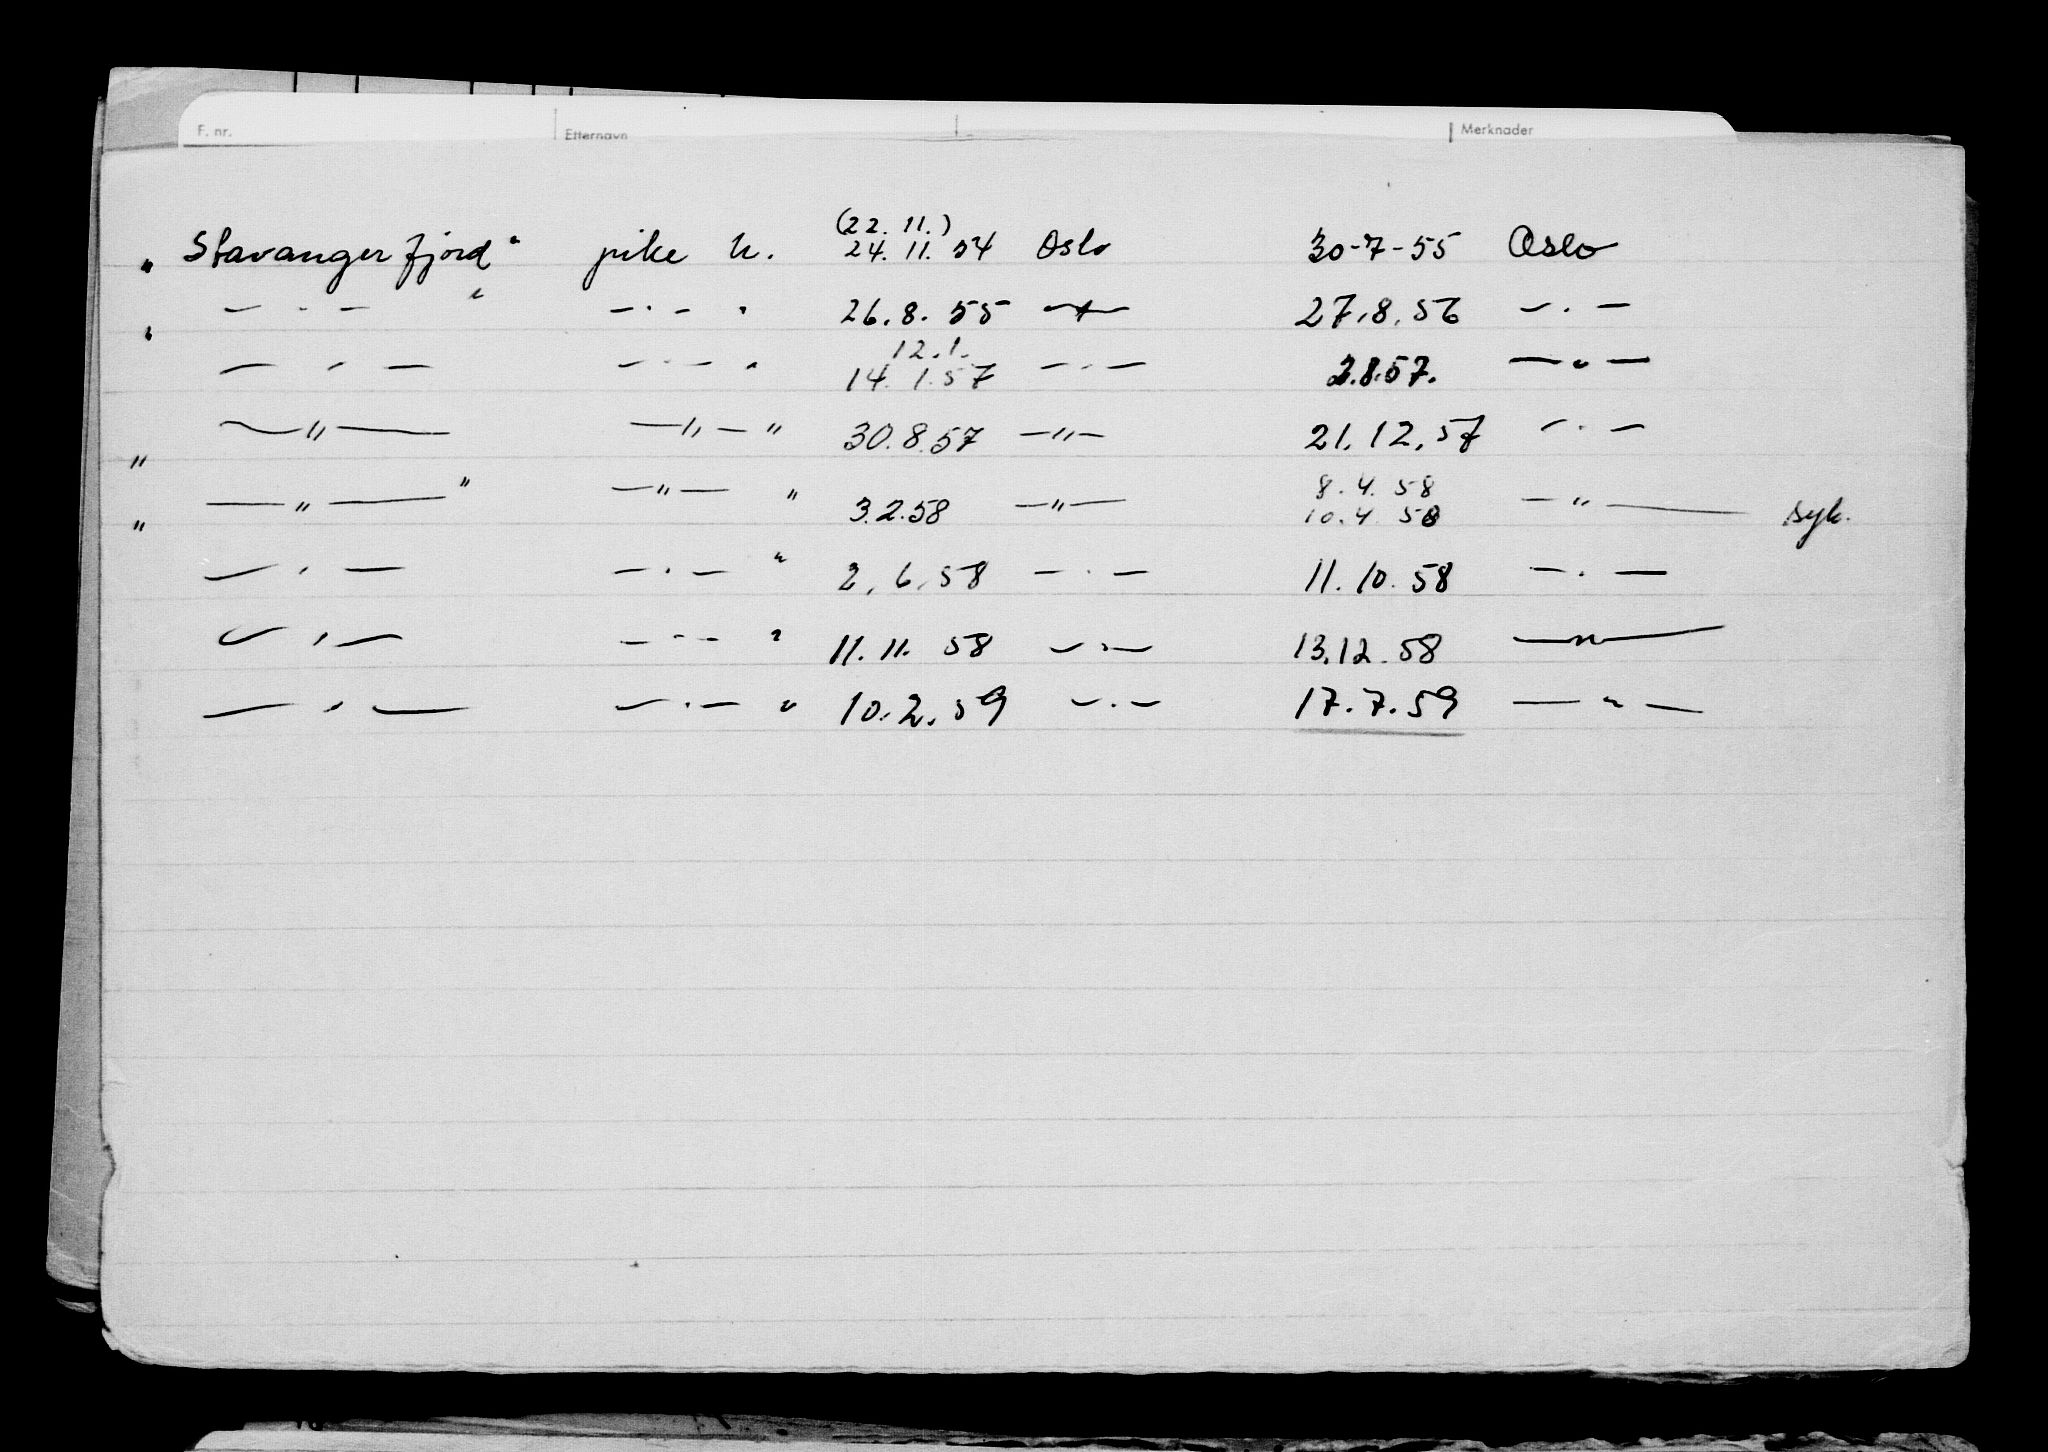 F. nr. Etternavn Merknader
(22. 11.)
„ Stavangerfjord" pike h. 24. 11. 54 Oslo 30-7-55 Oslo
„ — „ — " — „ — " 26. 8. 55 — „ — 27. 8. 56 — „ —
12. 1.
— „ — — „ — " 14. 1. 57 — „ — 2.8.57. — „ —
„ — „ — — „ — " 30. 8. 57 — „ — 21. 12. 57 — „ —
8. 4. 58
„ — „ — " — „ — " 3. 2. 58 — „ — 10. 4. 58 — „ — syk.
— „ — — „ — " 2. 6. 58 — „ — 11. 10. 58 — „ —
— „ — — „ — " 11. 11. 58 — „ — 13. 12. 58 — „ —
— „ — — „ — " 10. 2. 59 — „ — 17. 7. 59 — „ —